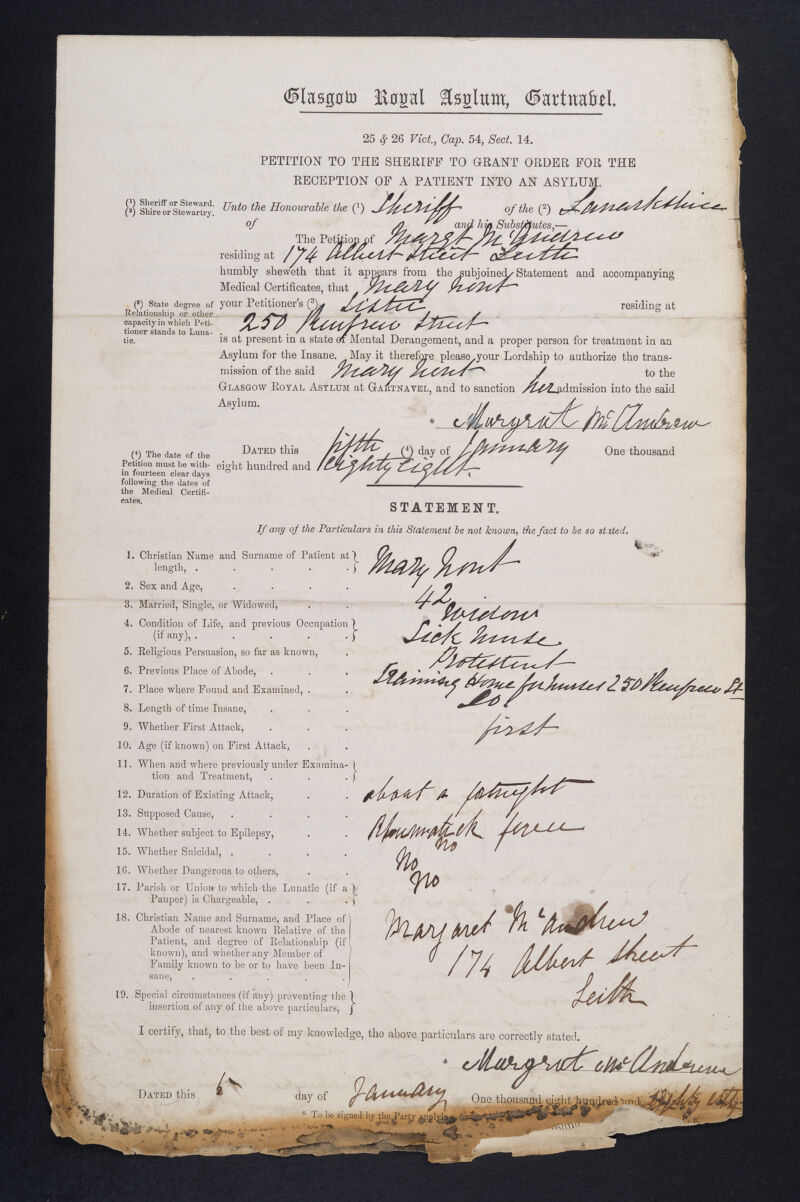 Glasgow Royal Asylum, Gartnavel.
25 & 26 Vict., Cap. 54, Sect. 14.
PETITION TO THE SHERIFF TO GRANT ORDER FOR THE
RECEPTION OF A PATIENT INTO AN ASYLUM.
(1) Sheriff or Steward.
(2) Shire or Stewartry.
Unto the Honourable the (1) Sheriff of the (2) Lanarkshire
of and his Substitutes,—
The Petition of Margt McAndrew
residing at 174 Albert Street Leith
humbly sheweth that it appears from the subjoined Statement and accompanying
Medical Certificates, that Mary
(3) State degree of
Relationship or other
capacity in which Peti-
tioner stands to Luna-
tic.
your Petitioner's (3) Sister residing at
250 Renfrew Street
is at present in a state of Mental Derangement, and a proper person for treatment in an
Asylum for the Insane. May it therefore please your Lordship to authorize the trans-
mission of the said Mary to the
GLASGOW ROYAL ASYLUM at GARTNAVEL, and to sanction her admission into the said
Asylum.
Margrat McAndrew
(4) The date of the
Petition must be with-
in fourteen clear days
following the dates of
the Medical Certifi-
cates.
DATED this fifth (4) day of January One thousand
eight hundred and eighty eight.
STATEMENT.
If any of the Particulars in this Statement be not known, the fact to be so stated.
1. Christian Name and Surname of Patient at
length, . . . . . Mary
2. Sex and Age, . . . . 42
3. Married, Single, or Widowed, . . Widow
4. Condition of Life, and previous Occupation
(if any), . . . . . Sick Nurse
5. Religious Persuasion, so far as known, . Protestent
6. Previous Place of Abode, . . . Training Home for nurses 250 Renfrew St
7. Place where Found and Examined, . . Do
8. Length of time Insane, . . .
9. Whether First Attack, . . . first
10. Age (if known) on First Attack, . .
11. When and where previously under Examina-
tion and Treatment, . . .
12. Duration of Existing Attack, . . about a fotnight
13. Supposed Cause, . . . .
14. Whether subject to Epilepsy, . . Rhumatick fever
15. Whether Suicidal, . . . . no
16. Whether Dangerous to others, . . No
17. Parish or Union to which the Lunatic (if a
Pauper) is Chargeable, . . . No
18. Christian Name and Surname, and Place of
Abode of nearest known Relative of the
Patient, and degree of Relationship (if
known), and whether any Member of
Family known to be or to have been In-
sane, . . . . .
Margaret McAndrew
174 Albert Street
Leith
19. Special circumstances (if any) preventing the
insertion of any of the above particulars,
I certify, that, to the best of my knowledge, the above particulars are correctly stated.
* Margrat McAndrew
DATED this 5 day of January One thousand eight hundred and eighty
* To be signed by the Party applying